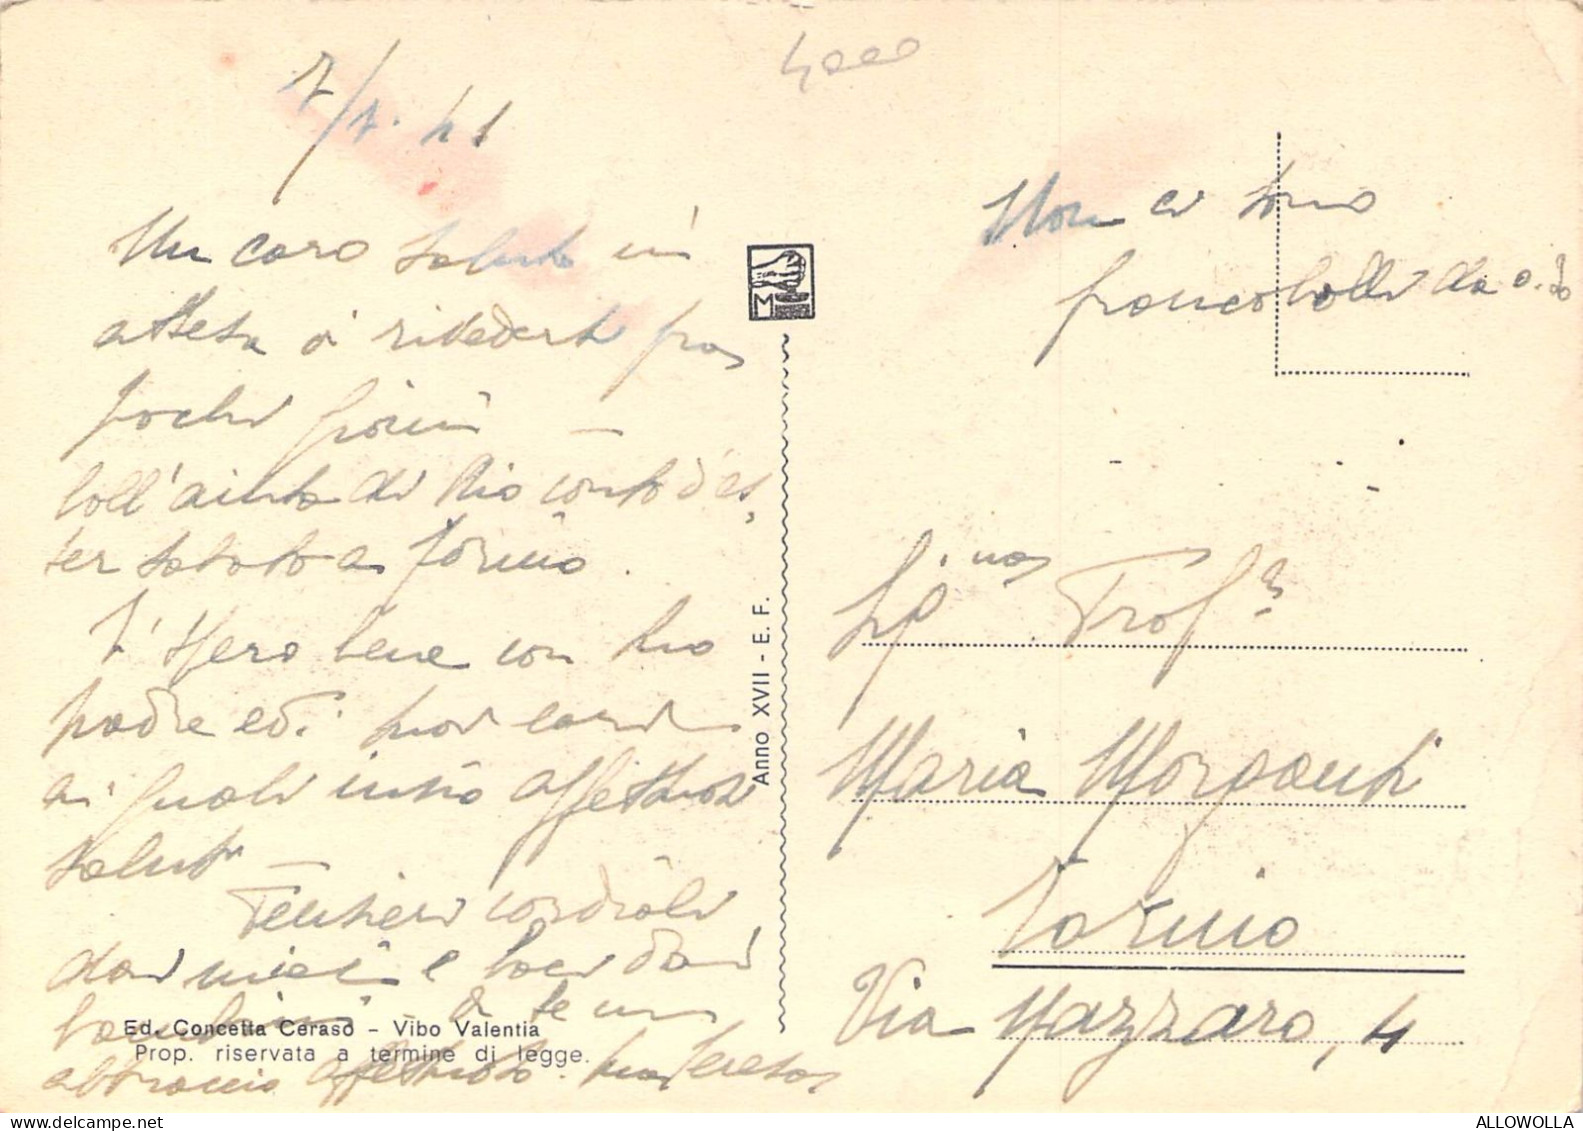 7/1.41
4000
Un caro saluto in
attesa di rivederti fra
pochi giorni —
Coll'aiuto di Dio conto d'es,
ser sabato a Torino.
Ti spero bene con tuo
padre ed i tuoi cari
ai quali invio affettuosi
saluti —
Pensieri cordiali
dai miei e baci dai
bambini — a te un
abbraccio affettuoso. tua Teresa
Ed. Concetta Ceraso - Vibo Valentia
Prop. riservata a termine di legge.
Anno XVII - E. F.
M
Non ci sono
francobolli da 0.30
Sig.na Prof.
Maria Morganti
Torino
Via Mazzaro, 4
ALLOWOLLA